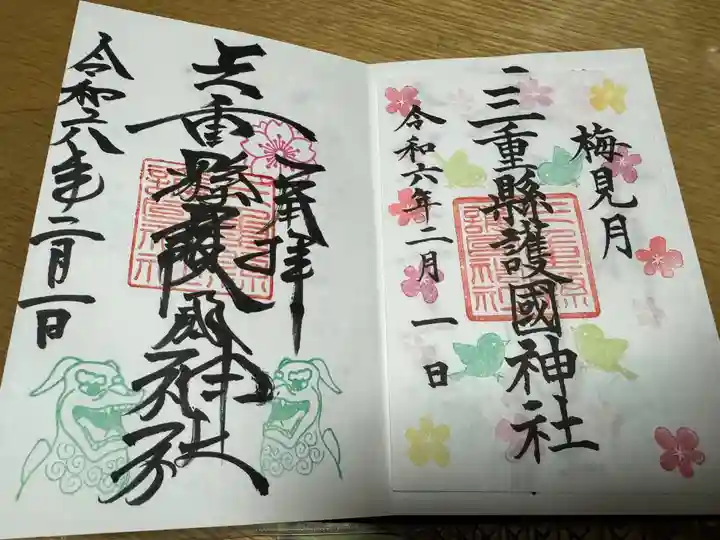 奉拝
三重縣護國神社
令和六年二月一日
梅見月
三重縣護國神社
令和六年二月一日